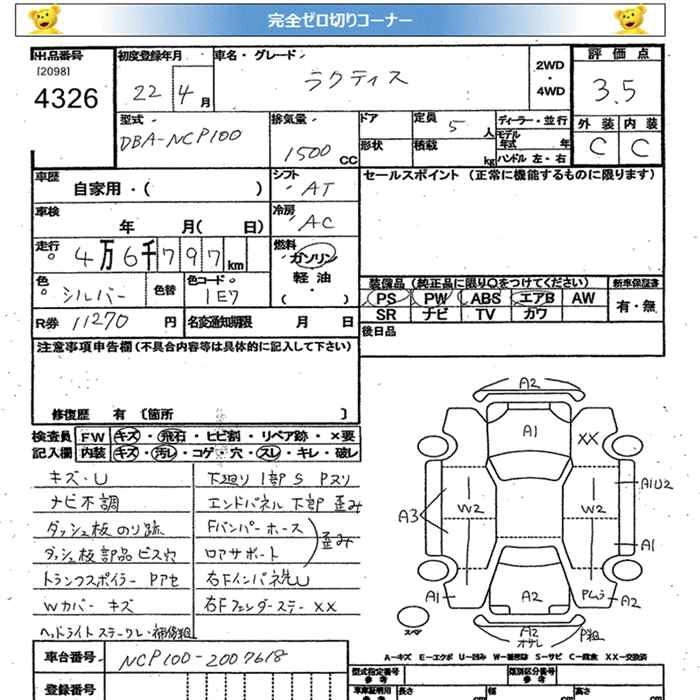 完全ゼロ切りコーナー
出品番号 初度登録年月 車名・グレード 2WD・4WD 評価点
[2098]
4326 22 4月 ラクティス 3.5
型式 排気量 ドア 定員 5人 ディーラー・並行 外装 内装
DBA-NCP100 1500CC 形状 積載 kg モデル年式 年 C C
ハンドル 左・右
車歴 自家用・( ) シフト AT セールスポイント (正常に機能するものに限ります)
車検 年 月( 日) 冷房 AC
走行 4万6千797km 燃料 ガソリン 軽油 ( ・ )
色 シルバー 色替 色コード 1E7 装備品(純正品に限り○をつけてください) 新車保証書
PS PW ABS エアB AW 有・無
SR ナビ TV カワ
R券 11270円 名変通知期限 月 日 後日品
注意事項申告欄(不具合内容等は具体的に記入して下さい)
修復歴 有 [箇所 ]
検査員 FW キズ・飛石・ヒビ割・リペア跡・×要
記入欄 内装 キズ・汚レ・コゲ・穴・スレ・キレ・破レ
キズ・U 下廻り 1部 S Pスリ
ナビ不調 エンドパネル 下部 歪み
ダッシュ板のり跡 Fバンパーホース
ダッシュ板部品ビス穴 ロアサポート 歪み
トランクスポイラー Pアセ 右Fインパネ先U
Wカバー キズ 右Fフェンダーステー XX
ヘッドライト
A2
A1 XX
A1U2
W2 W2
A3
A1
A1 A2 A2
スペア A2
A-キズ E-エクボ U-凹み S-サビ XX-交換済
車台番号 NCP100-2007618 型式指定番号 参考 類別区分番号 参考
登録番号 車庫証明用 参考 長さ cm 幅 cm 高さ cm